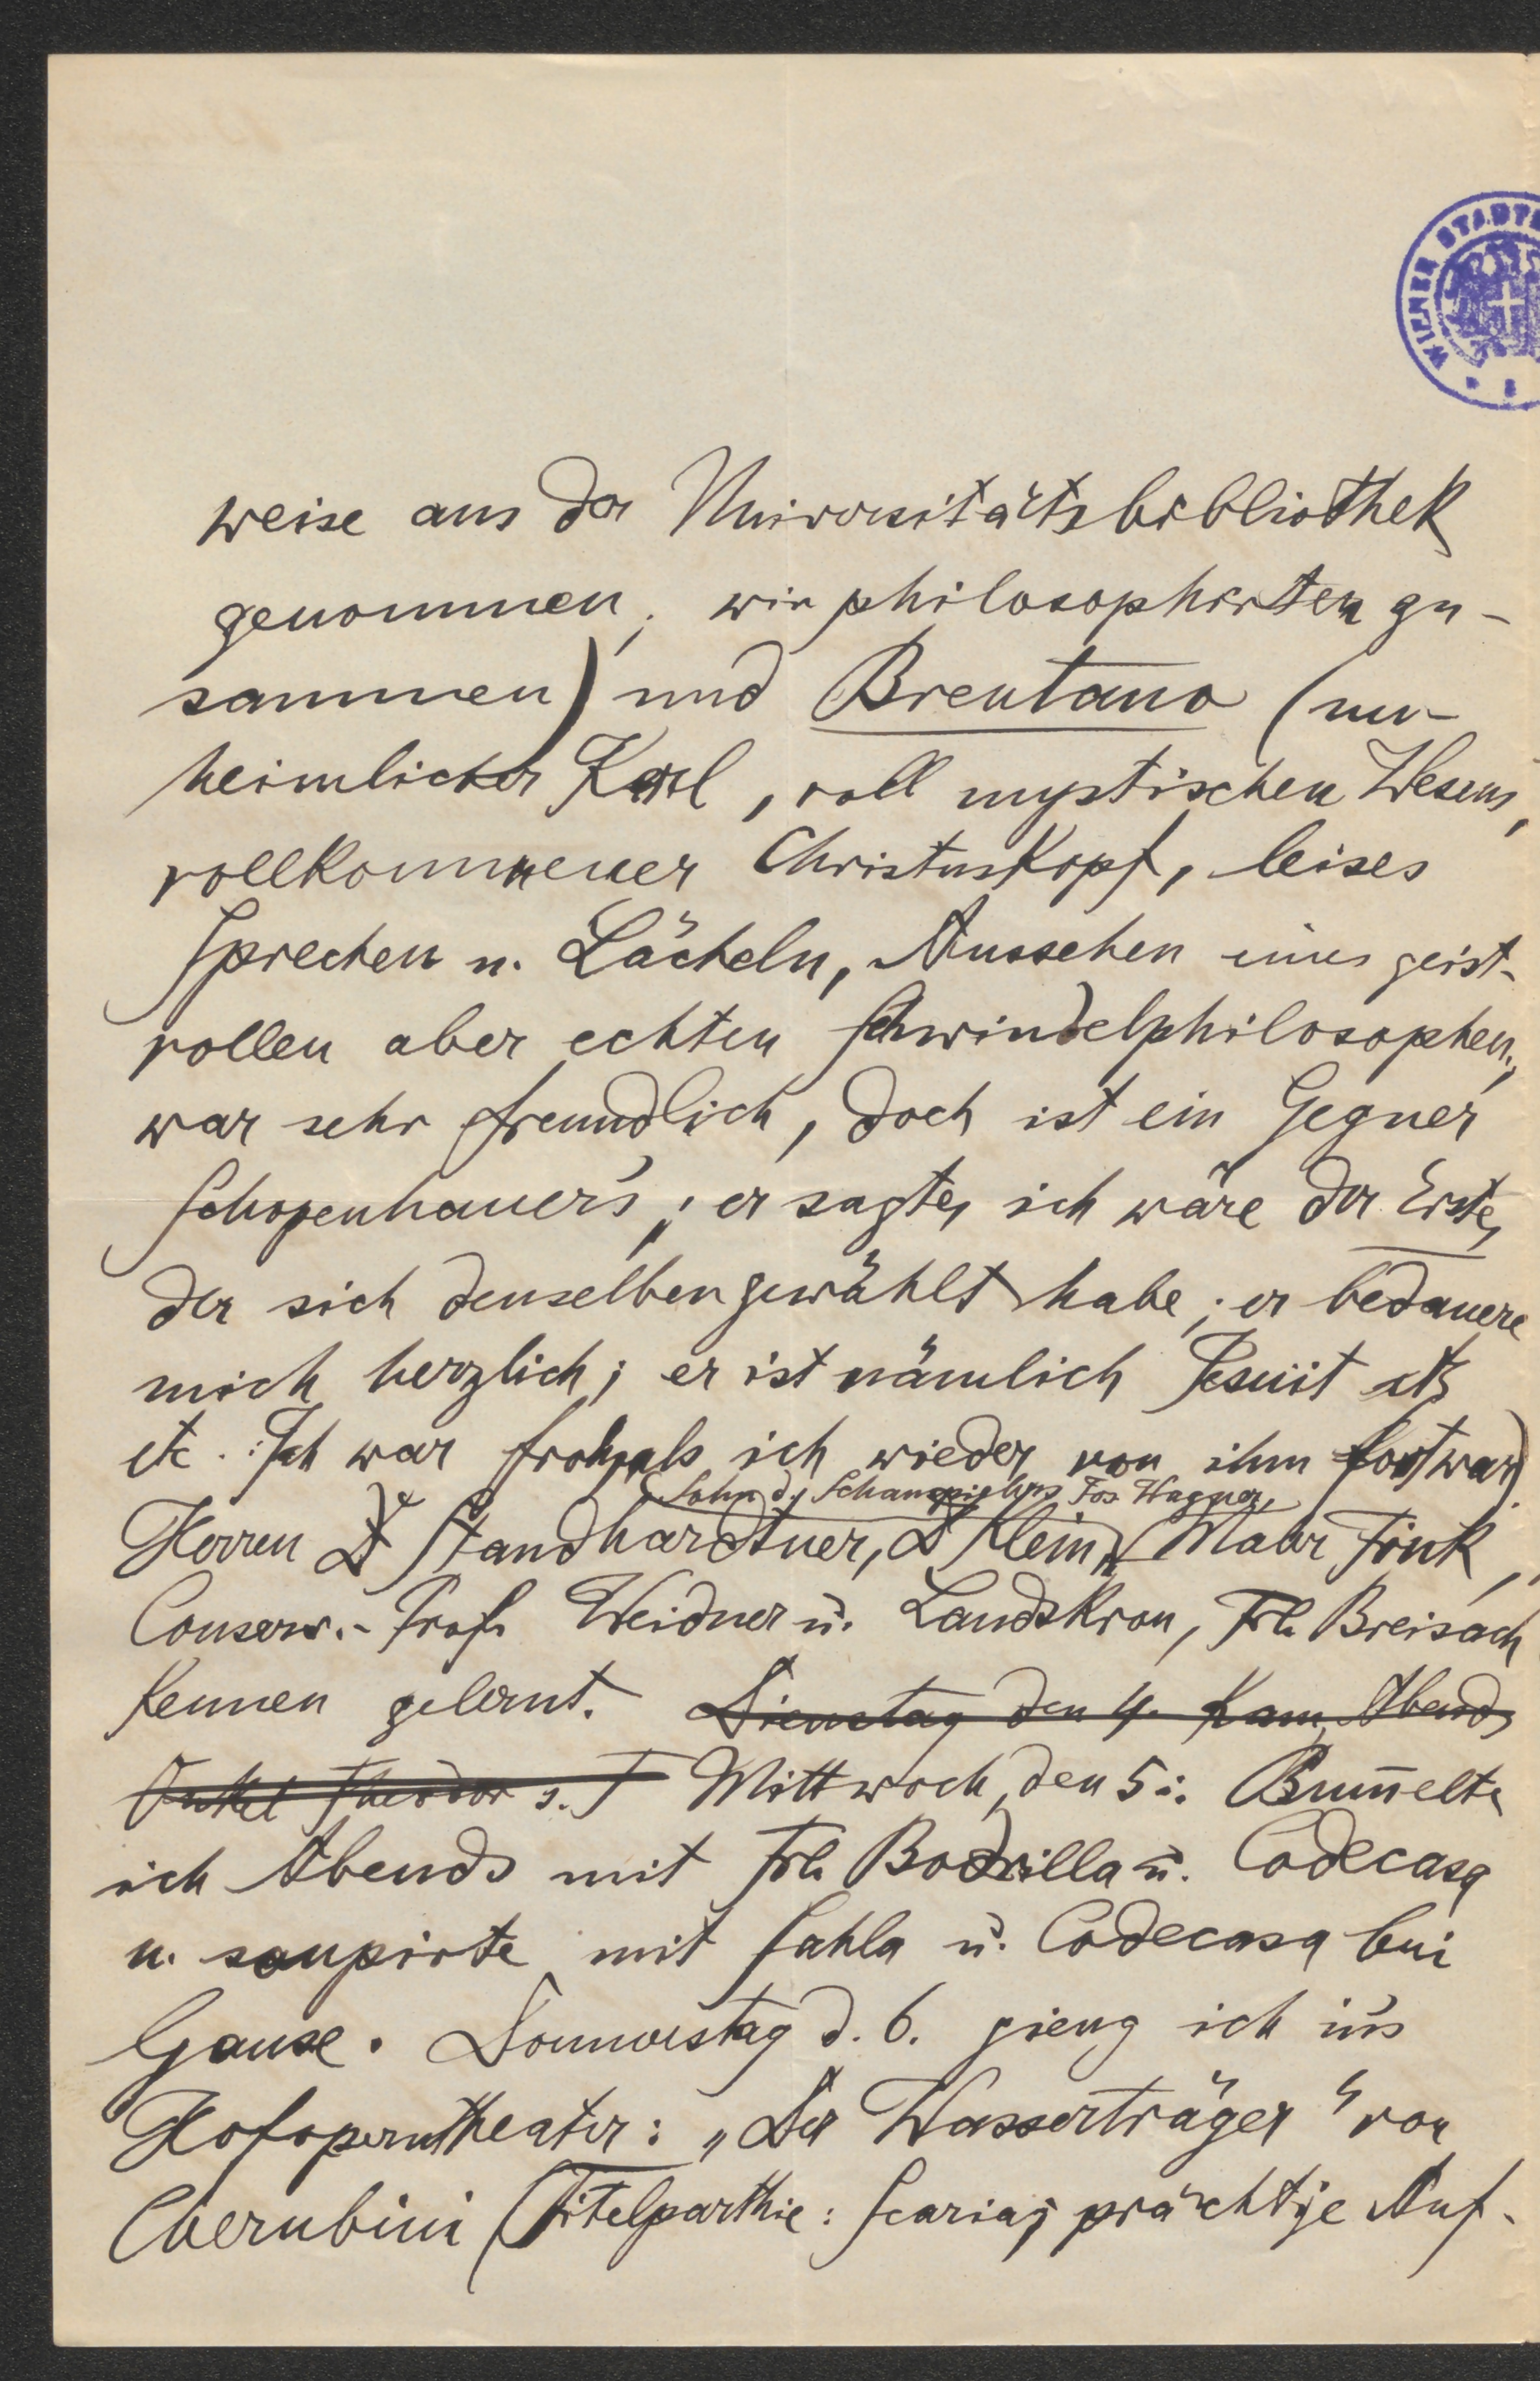 WIENER STADT
weise aus der Universitätsbibliothek
genommen; wir philosophirten zu-
sammen) und Brentano (un-
heimlicher Kerl, voll mystischen Wesens,
vollkommener Christuskopf, leises
Sprechen u. Lächeln, Aussehen eines geist-
vollen aber echten Schwindelphilosophen;
war sehr freundlich, doch ist ein Gegner
Schopenhauer's; er sagte, ich wäre der Erste,
der sich denselben gewählt habe; er bedauere
mich herzlich; er ist nämlich Jesuit etc
etc. Ich war froh, als ich wieder von ihm fort war).
(Sohn d. Schauspielers Jos Wagner,
Herren Dr Standhardtner, Dr Klein, Mahr Fink,
Conserv.-Prof. Weidner u. Landskron, Frl. Breisach
kennen gelernt. Dienstag den 4. kam Abends
Onkel Theodor s. T Mittwoch, den 5. Bum̅elte
ich Abends mit Frl. Bodrilla u. Codecasa
u. soupirte mit Sahla u. Codecasa bei
Gause. Donnerstag d. 6. gieng ich in's
Hofoperntheater: „Der Wasserträger" von
Cherubini (Titelparthie: Scaria; prächtige Auf-